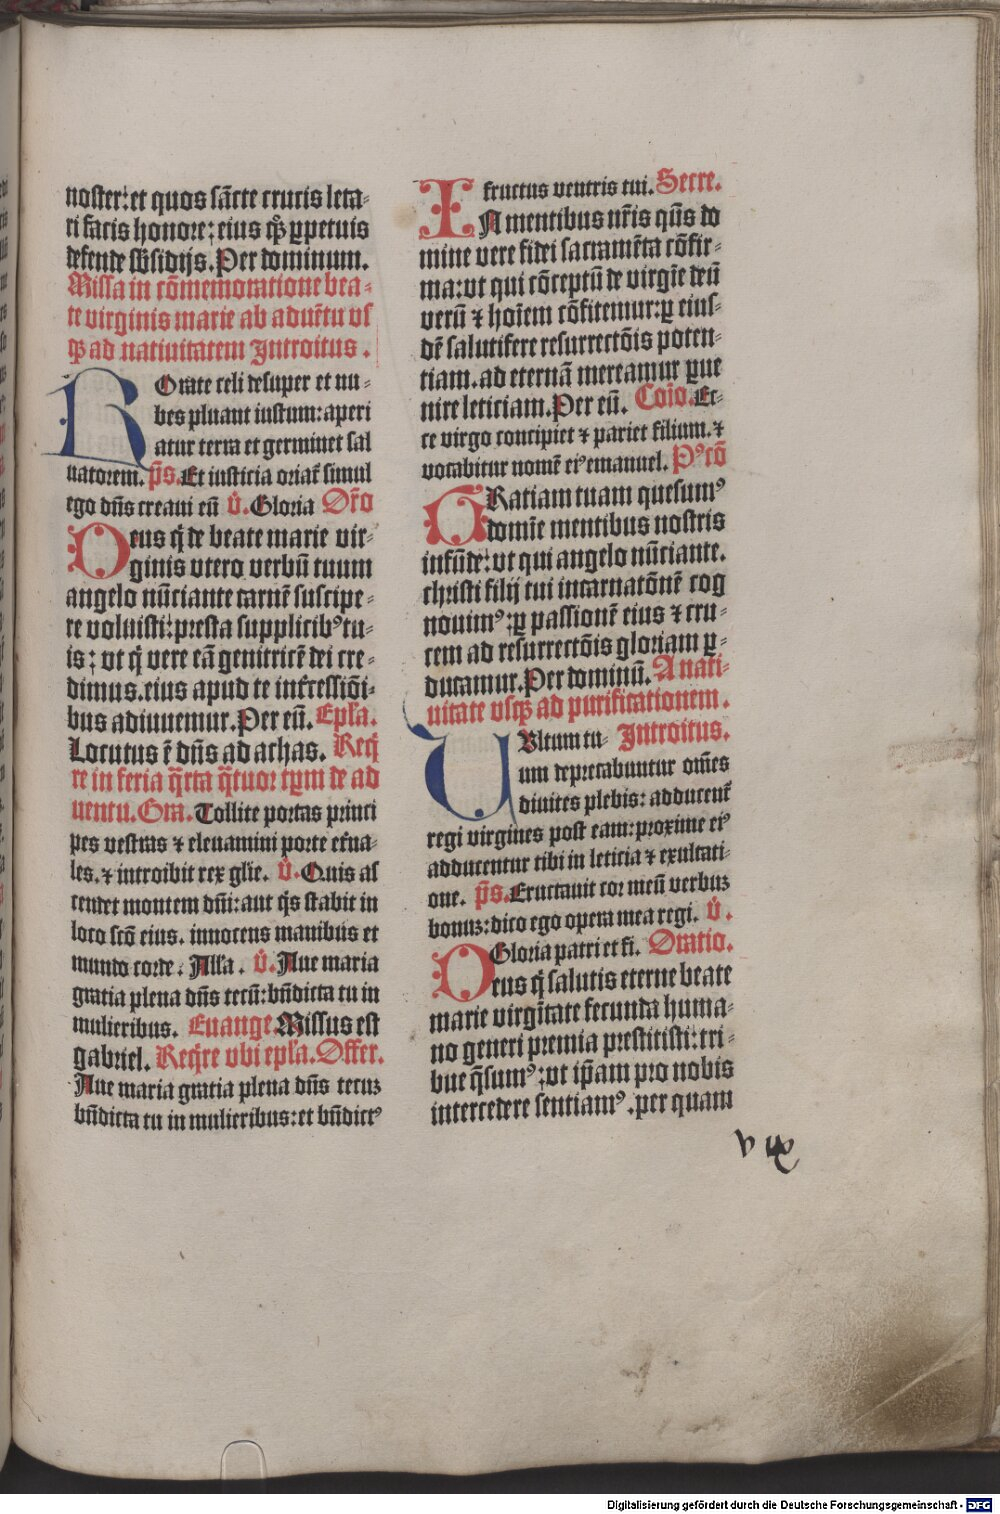 noster: et quos sācte crucis leta-
ri facis honore: eius qȝ ꝑpetuis
defende sb̄sidijs. Per dominum.
Missa in cōmemoratione bea-
te virginis marie ab aduētu vs
qȝ ad natiuitatem Introitus.
ROrate celi desuper et nu-
bes pluant iustum: aperi
atur terra et germinet sal
uatorem. p̄s. Et iusticia oriat᷑ simul
ego dn̄s creaui eū v̄. Gloria Or̄o
Deus q̄ de beate marie vir-
ginis vtero verbū tuum
angelo nūciante carnē suscipe-
re voluisti: presta supplicibꝰ tu-
is: vt q̄ vere eā genitricē dei cre-
dimus. eius apud te int᷑cessiōi-
bus adiuuemur. Per eū. Epl̄a.
Locutus ē dn̄s ad achas. Req̄
re in feria q̄rta q̄tuor tꝑm de ad
uentu. Gra. Tollite portas princi
pes vestras ⁊ eleuamini porte et᷑na-
les. ⁊ introibit rex gl̄ie. v̄. Quis as
cendet montem dn̄i: aut q̄s stabit in
loco scō eius. innocens manibus et
mundo corde. All̄a. v̄. Aue maria
gratia plena dn̄s tecū: bn̄dicta tu in
mulieribus. Euange. Missus est
gabriel. Req̄re vbi epl̄a. Offer.
Aue maria gratia plena dn̄s tecuȝ
bn̄dicta tu in mulieribus: et bn̄dictꝰ
fructus ventris tui. Secre.
IN mentibus nr̄is qūs do
mine vere fidei sacramēta cōfir-
ma: vt qui cōceptū de virgīe deū
verū ⁊ hoīem cōfitemur: ꝑ eius-
dē salutifere resurrectōis poten-
tiam. ad eternā mereamur ꝑue
nire leticiam. Per eū. Cōio. Ec-
ce virgo concipiet ⁊ pariet filium. ⁊
vocabitur nomē eiꝰ emanuel. Pꝰcō
GRatiam tuam quesumꝰ
domīe mentibus nostris
infūde: vt qui angelo nūciante.
christi filij tui incarnatōnē cog
nouimꝰ: ꝑ passionē eius ⁊ cru-
cem ad resurrectōis gloriam ꝑ-
ducamur. Per dominū. A nati-
uitate vsqȝ ad purificationem.
VUltum tu- Introitus.
um deprecabuntur om̄es
diuites plebis: adducent᷑
regi virgines post eam: proxime eiꝰ
adducentur tibi in leticia ⁊ exultati-
one. p̄s. Eructauit cor meū verbuȝ
bonuȝ: dico ego opera mea regi. v̄.
Gloria patri et fi. Oratio.
Deus q̄ salutis eterne beate
marie virgītate fecunda huma-
no generi premia prestitisti: tri-
bue q̄sumꝰ: vt ip̄am pro nobis
intercedere sentiamꝰ. per quam
Digitalisierung gefördert durch die Deutsche Forschungsgemeinschaft - DFG